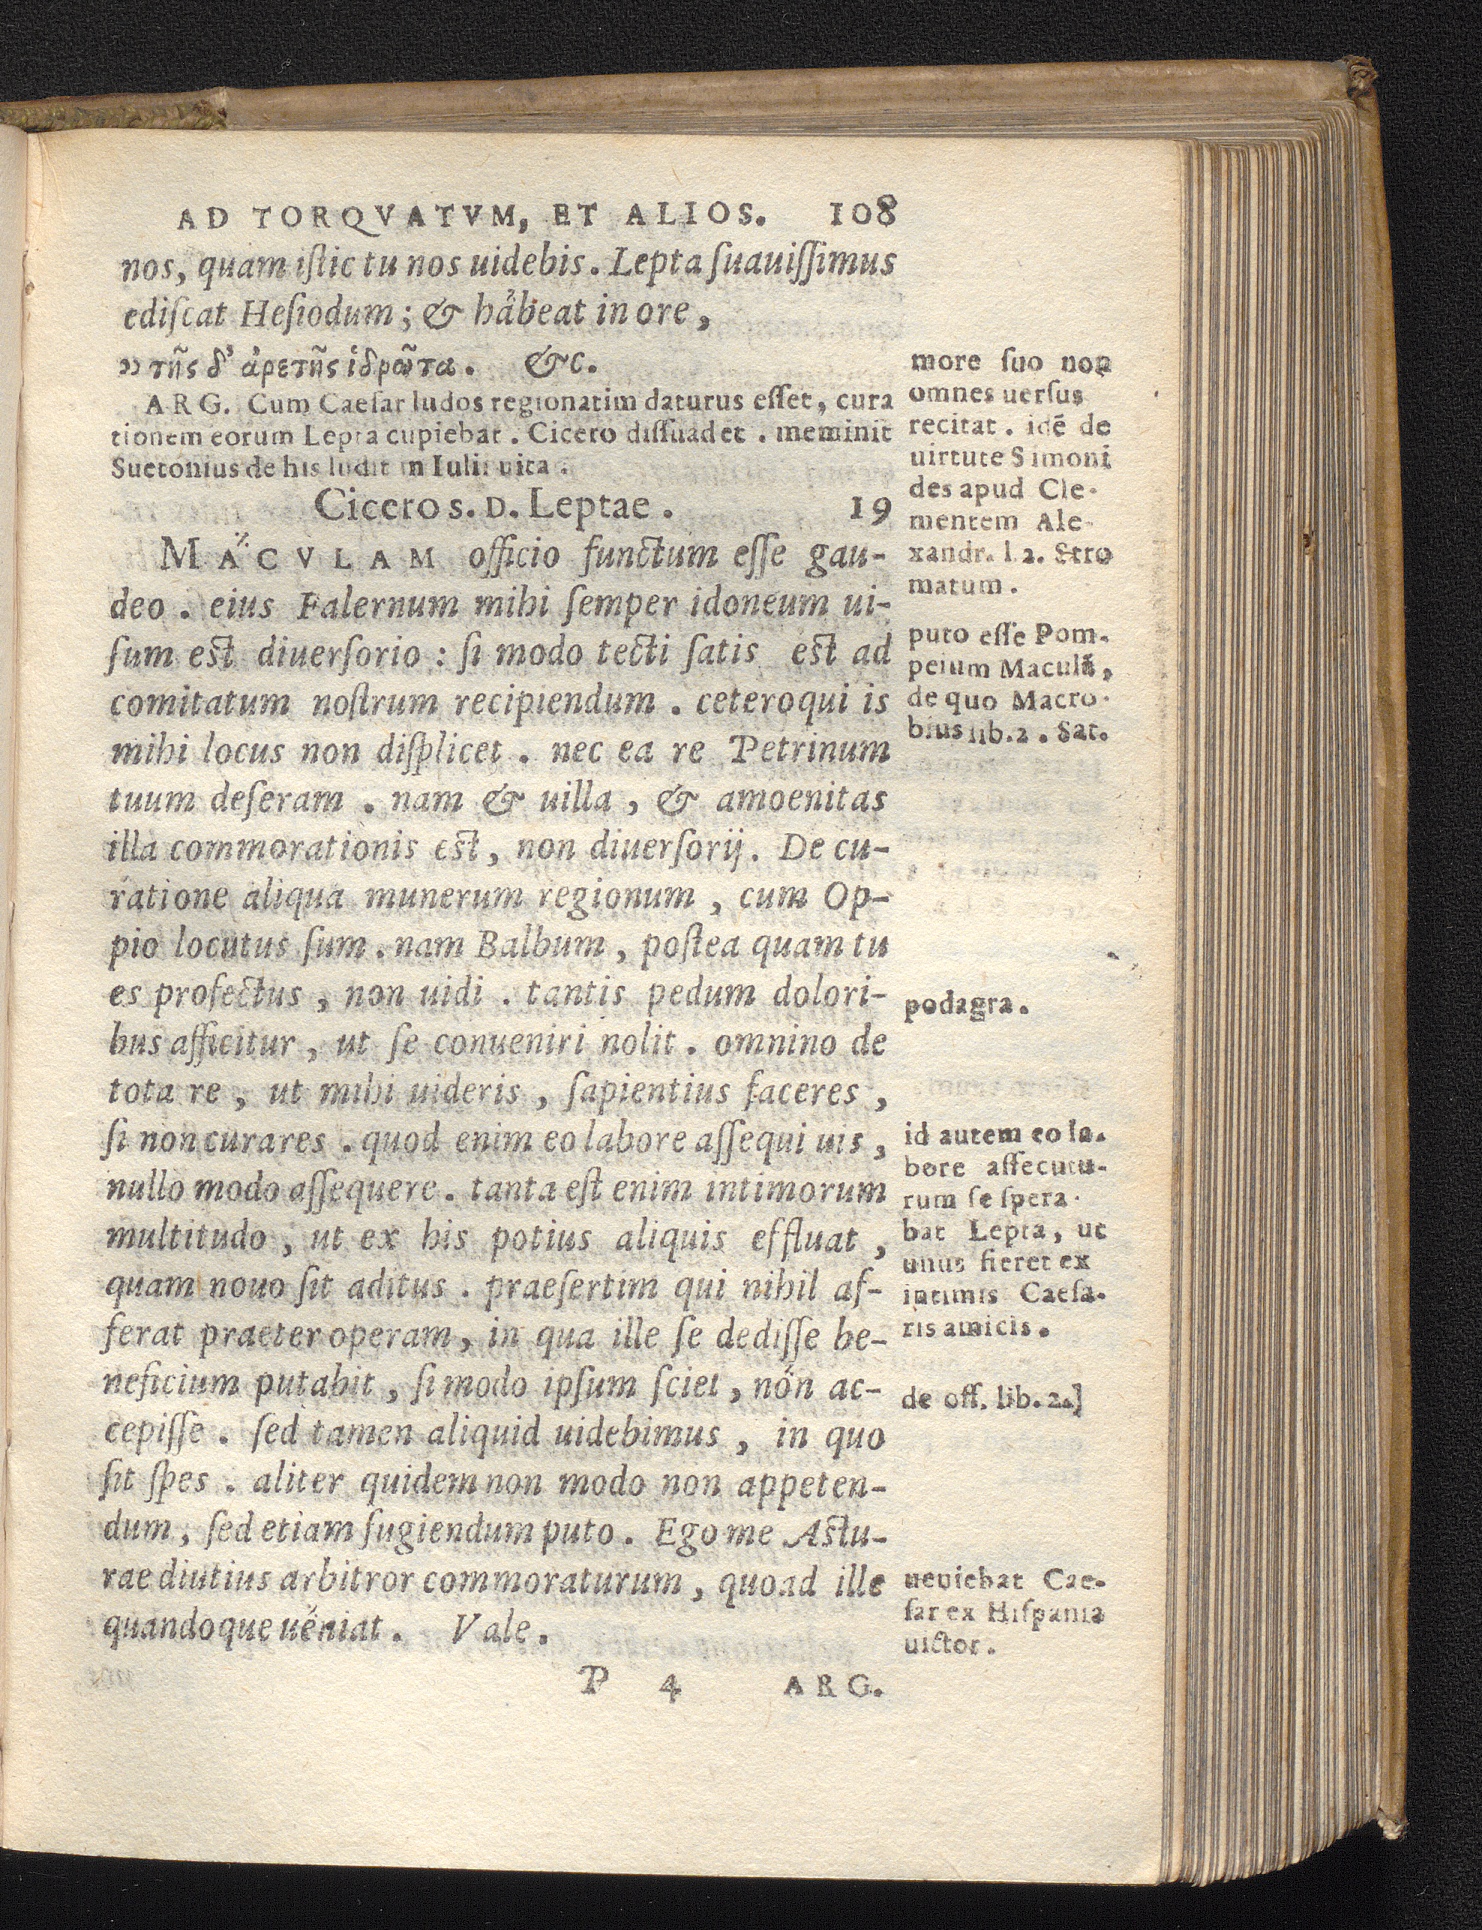 AD TORQVATVM, ET ALIOS. 108
nos, quam istic tu nos uidebis. Lepta suauissimus
ediscat Hesiodum; & habeat in ore,
τῆς δ' ἀρετῆς ἱδρῶτα. &c.
ARG. Cum Caesar ludos regionatim daturus esset, cura
tionem eorum Lepta cupiebat. Cicero dissuadet. meminit
Suetonius de his ludit in Iulii uita.
Cicero s. D. Leptae. 19
MACVLAM officio functum esse gau-
deo. eius Falernum mihi semper idoneum ui-
sum est diuersorio: si modo tecti satis est ad
comitatum nostrum recipiendum. ceteroqui is
mihi locus non displicet. nec ea re Petrinum
tuum deseram. nam & uilla, & amoenitas
illa commorationis est, non diuersorij. De cu-
ratione aliqua munerum regionum, cum Op-
pio locutus sum. nam Balbum, postea quam tu
es profectus, non uidi. tantis pedum dolori-
bus afficitur, ut se conueniri nolit. omnino de
tota re, ut mihi uideris, sapientius faceres,
si non curares. quod enim eo labore assequi uis,
nullo modo assequere. tanta est enim intimorum
multitudo, ut ex his potius aliquis effluat,
quam nouo sit aditus. praesertim qui nihil af-
ferat praeter operam, in qua ille se dedisse be-
neficium putabit, si modo ipsum sciet, non ac-
cepisse. sed tamen aliquid uidebimus, in quo
sit spes. aliter quidem non modo non appeten-
dum, sed etiam fugiendum puto. Ego me Astu-
rae diutius arbitror commoraturum, quoad ille
quandoque ueniat. Vale.
P 4 ARG.
more suo non
omnes uersus
recitat. idē de
uirtute Simoni
des apud Cle-
mentem Ale-
xandr. l. 2. Stro
matum.
puto esse Pom-
peium Maculā,
de quo Macro-
bius lib. 2. Sat.
podagra.
id autem eo la-
bore assecutu-
rum se spera-
bat Lepta, ut
unus fieret ex
intimis Caesa-
ris amicis.
de off. lib. 2.]
ueniebat Cae-
sar ex Hispania
uictor.